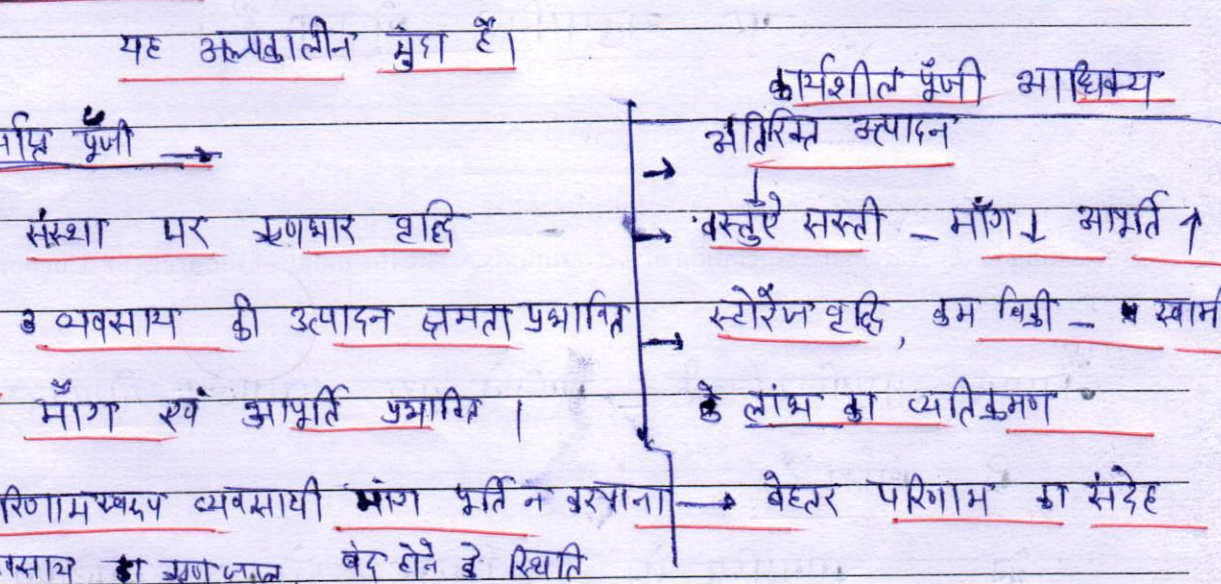 यह अल्पकालीन मुद्दा है।
पूँजी →
संस्था पर ऋणभार वृद्धि
व्यवसाय की उत्पादन क्षमता प्रभावित
माँग एवं आपूर्ति प्रभावित।
व्यवसायी मांग पूर्ति न कर पाना
बंद होने के स्थिति
कार्यशील पूँजी आधिक्य
→ अतिरिक्त उत्पादन
↓
→ वस्तुऐ सस्ती - माँग ↓ आपूर्ति ↑
→ स्टोरेज वृद्धि, कम बिक्री -
के लांभ का व्यतिक्रमण
→ बेहतर परिणाम का संदेह